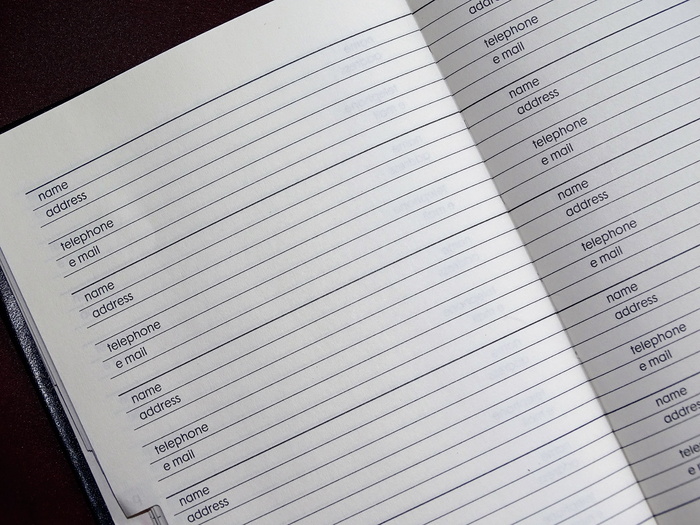 name
address
telephone
e mail
name
address
telephone
e mail
name
address
telephone
e mail
name
address
telephone
e mail
name
address
telephone
e mail
name
address
telephone
e mail
name
address
telephone
e mail
name
address